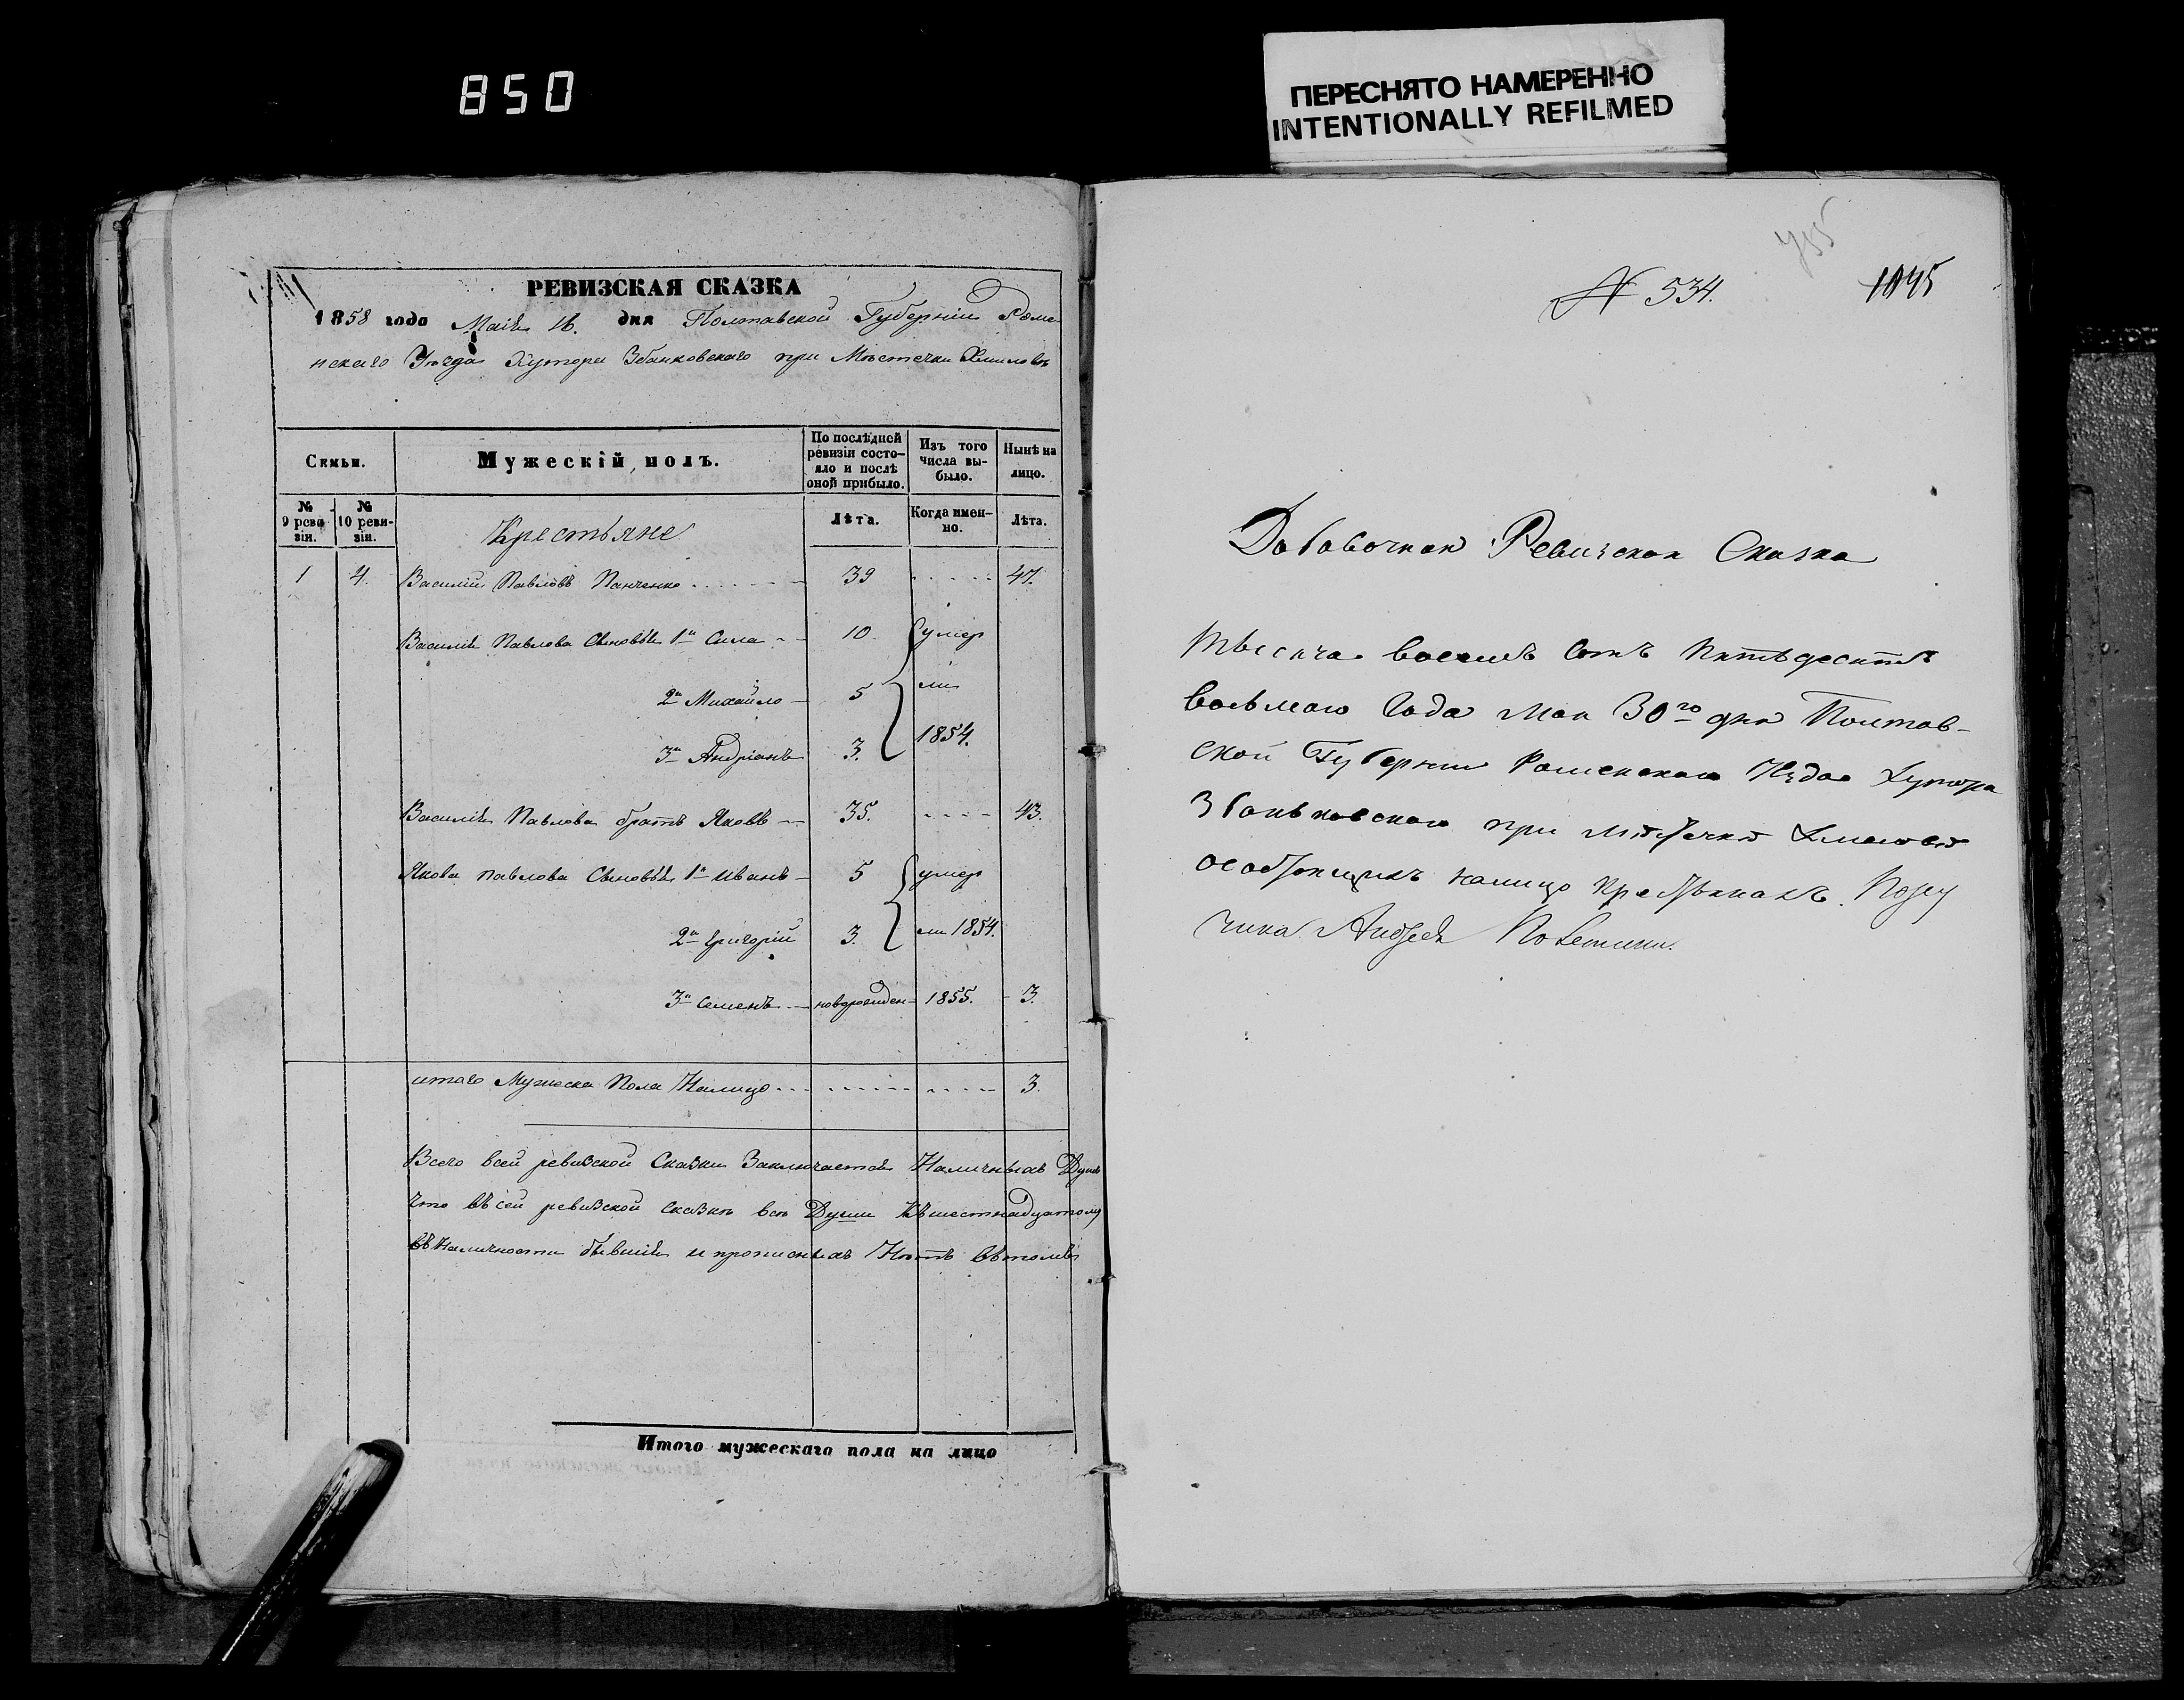 850
ПЕРЕСНЯТО НАМЕРЕННО
INTENTIONALLY REFILMED
РЕВИЗСКАЯ СКАЗКА
1858 года Маія 16. дня Полтавской Губерніи Роме
нскаго Уезда Хутора Збанковскаго при Местечки Хмиловѣ
Семьи.
Мужескій полъ.
По послѣдней ревизіи состояло и послѣ оной прибыло.
Изъ того числа выбыло.
Нынѣ на лицо.
№ 9 ревизіи.
№ 10 ревизіи.
Крестьяне
Лѣта.
Когда именно.
Лѣта.
1 4. Василій Павловъ Панченко 39 47.
Василія Павлова Сыновья 1й Сила 10. умер
2й Михайло 5 ли
3й Андріанъ 3. 1854.
Василія Павлова братъ Яковъ 35. 43.
Якова павлова Сыновья 1й иванъ 5 умер
2й григорій 3. ли 1854.
3й семенъ новорожден 1855. 3.
итого Мужеска Пола Налицо 3.
Всего всей ревизской Сказки Заключается Наличныхъ Душъ
что въ сей ревизской сказкѣ всѣ Души къ шестнадцатому
въ Наличности бывшія и прописныхъ Нѣтъ въ томъ
Итого мужескаго пола на лицо
N 534.
755
1045
Добавочная Ревизская Сказка
Тысяча восемь Сотъ Пятьдесятъ
восьмаго Года Мая 30го дня Полтав-
ской Губерніи Роменскаго Уезда Хутора
Збаньковскаго при Местечкѣ Хмиловѣ
особящихъ налицо Крестьянахъ. Пору
чика Андрея